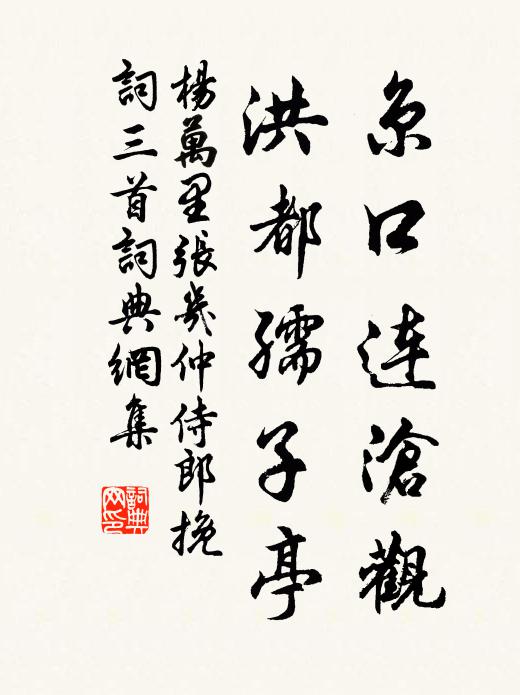 京口連滄觀
洪都孺子亭
楊萬里張幾仲侍郎挽
詞三首詞典網集
詞典
网印